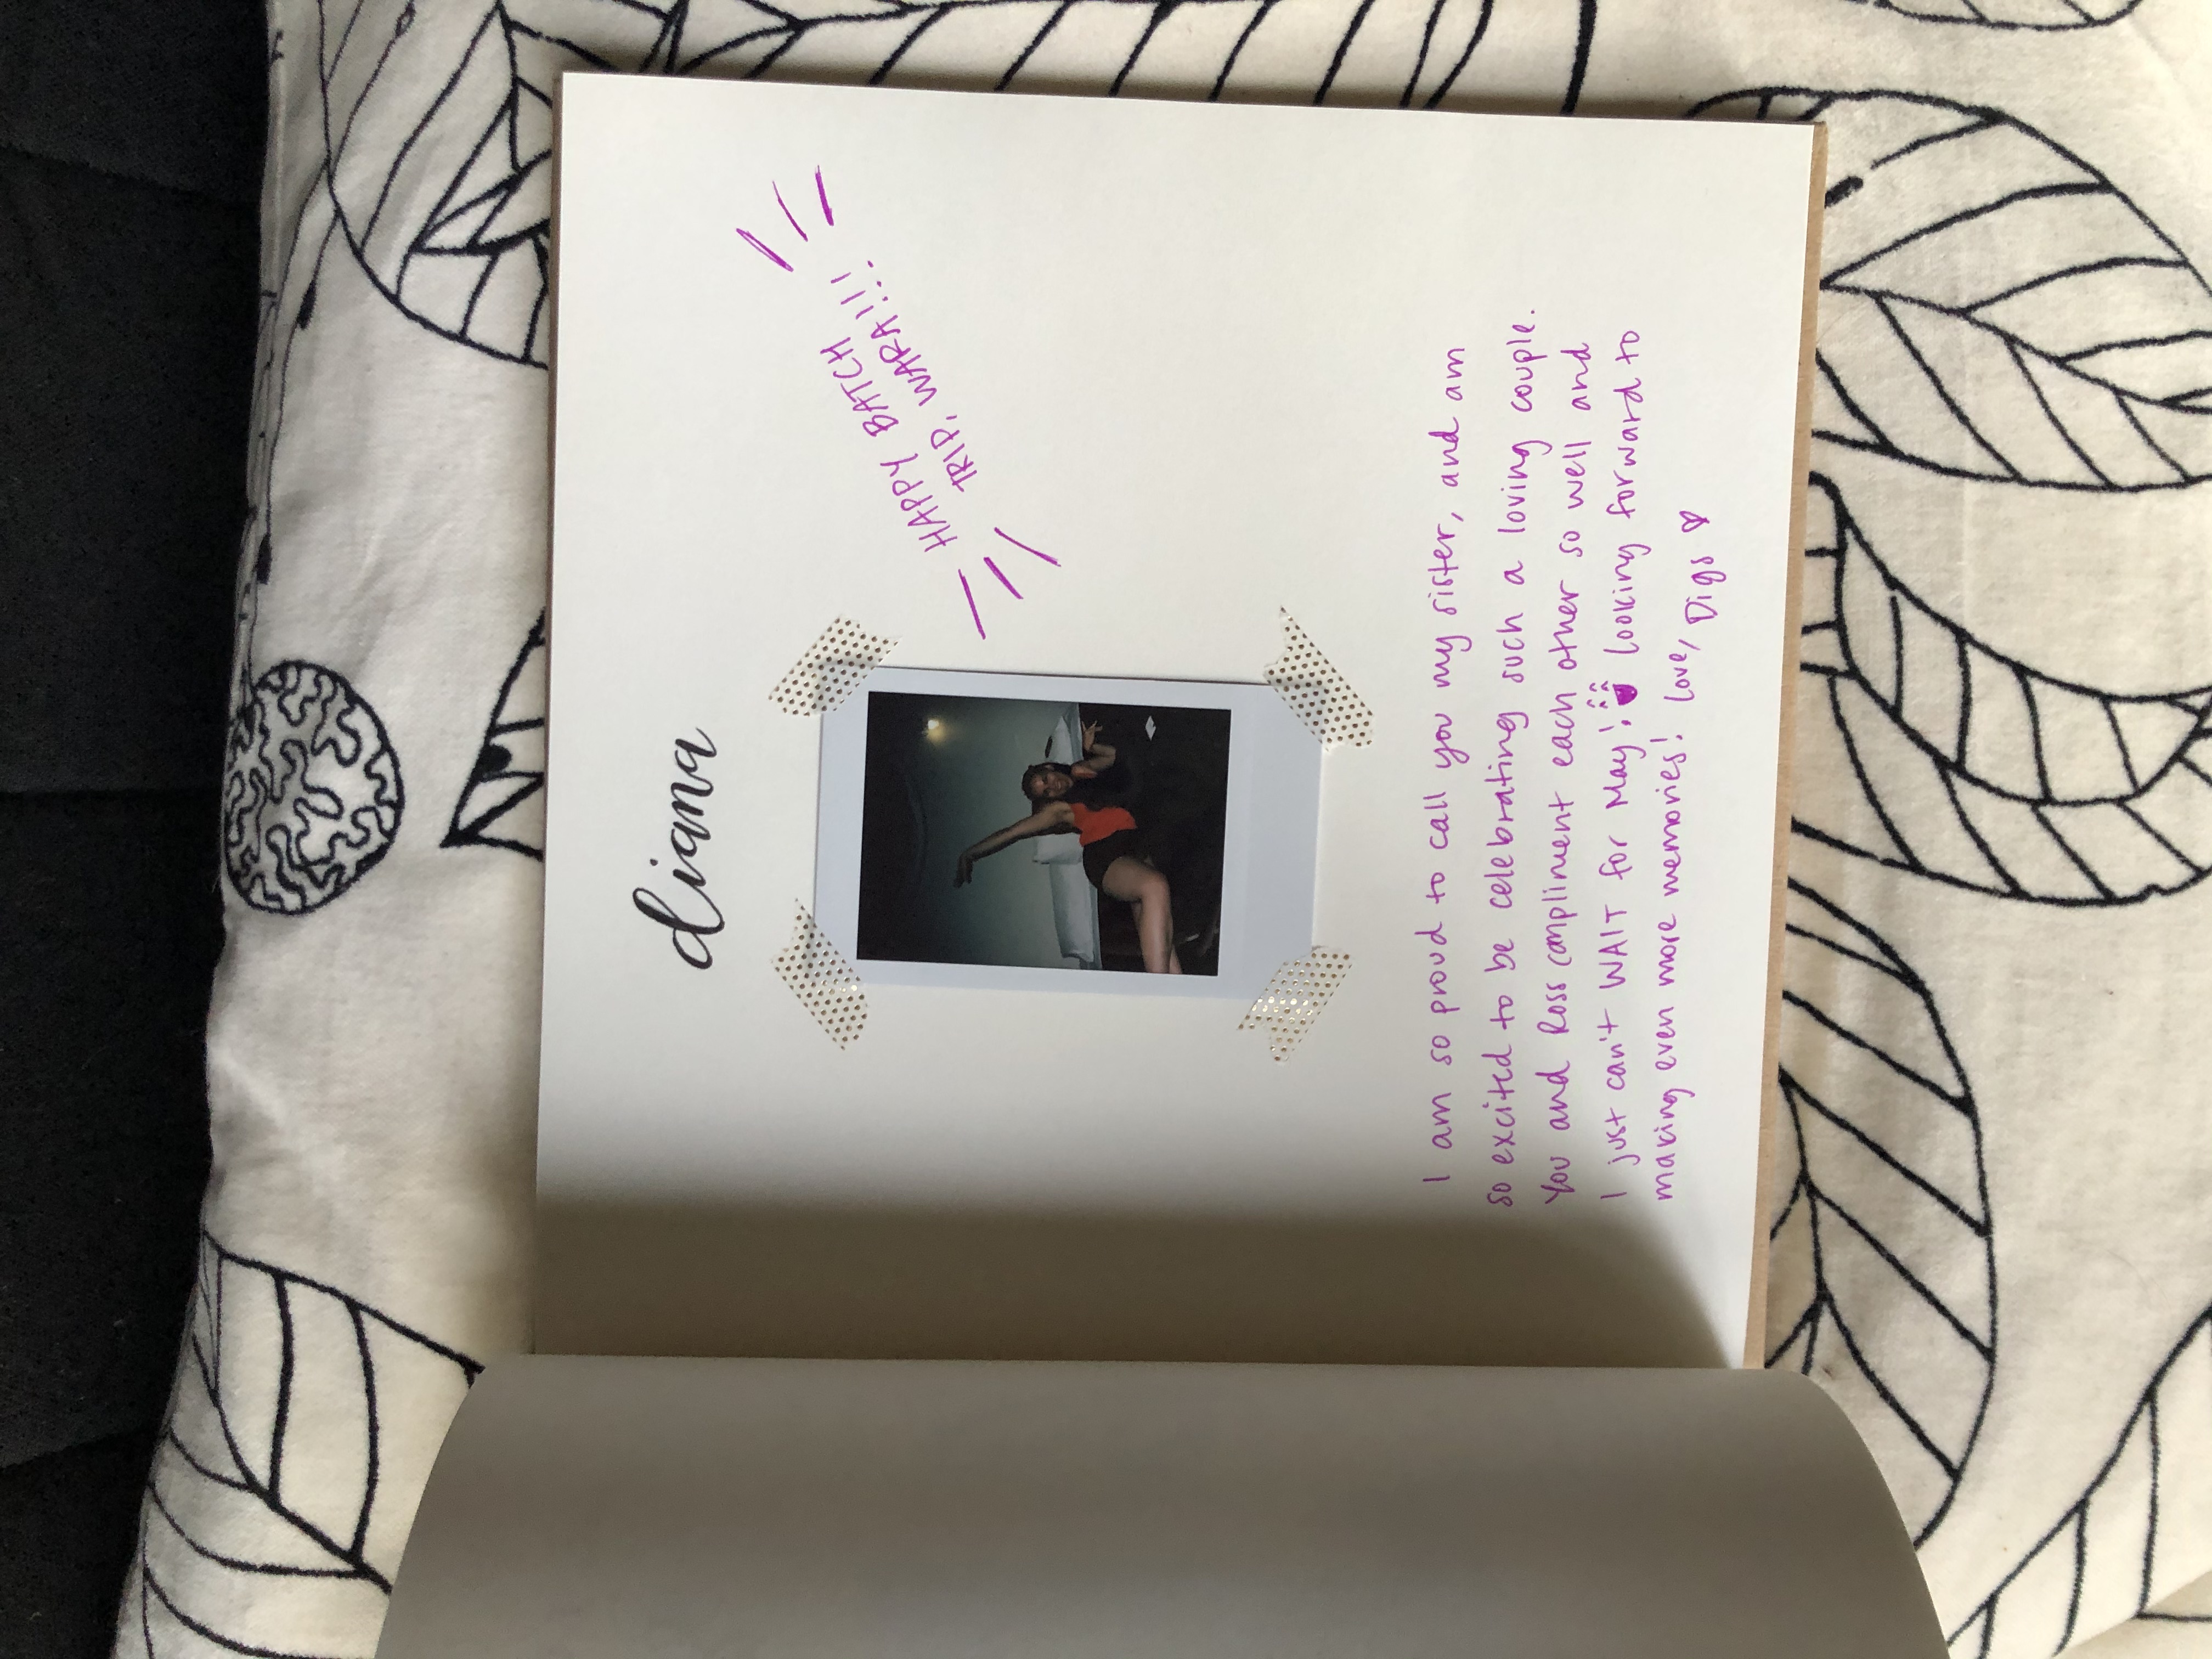 diana
HAPPY BATCH
TRIP, WARA!!!
I am so proud to call you my sister, and am
so excited to be celebrating such a loving couple.
You and Ross compliment each other so well and
I just can't WAIT for May! looking forward to
making even more memories! love, Digs ♡